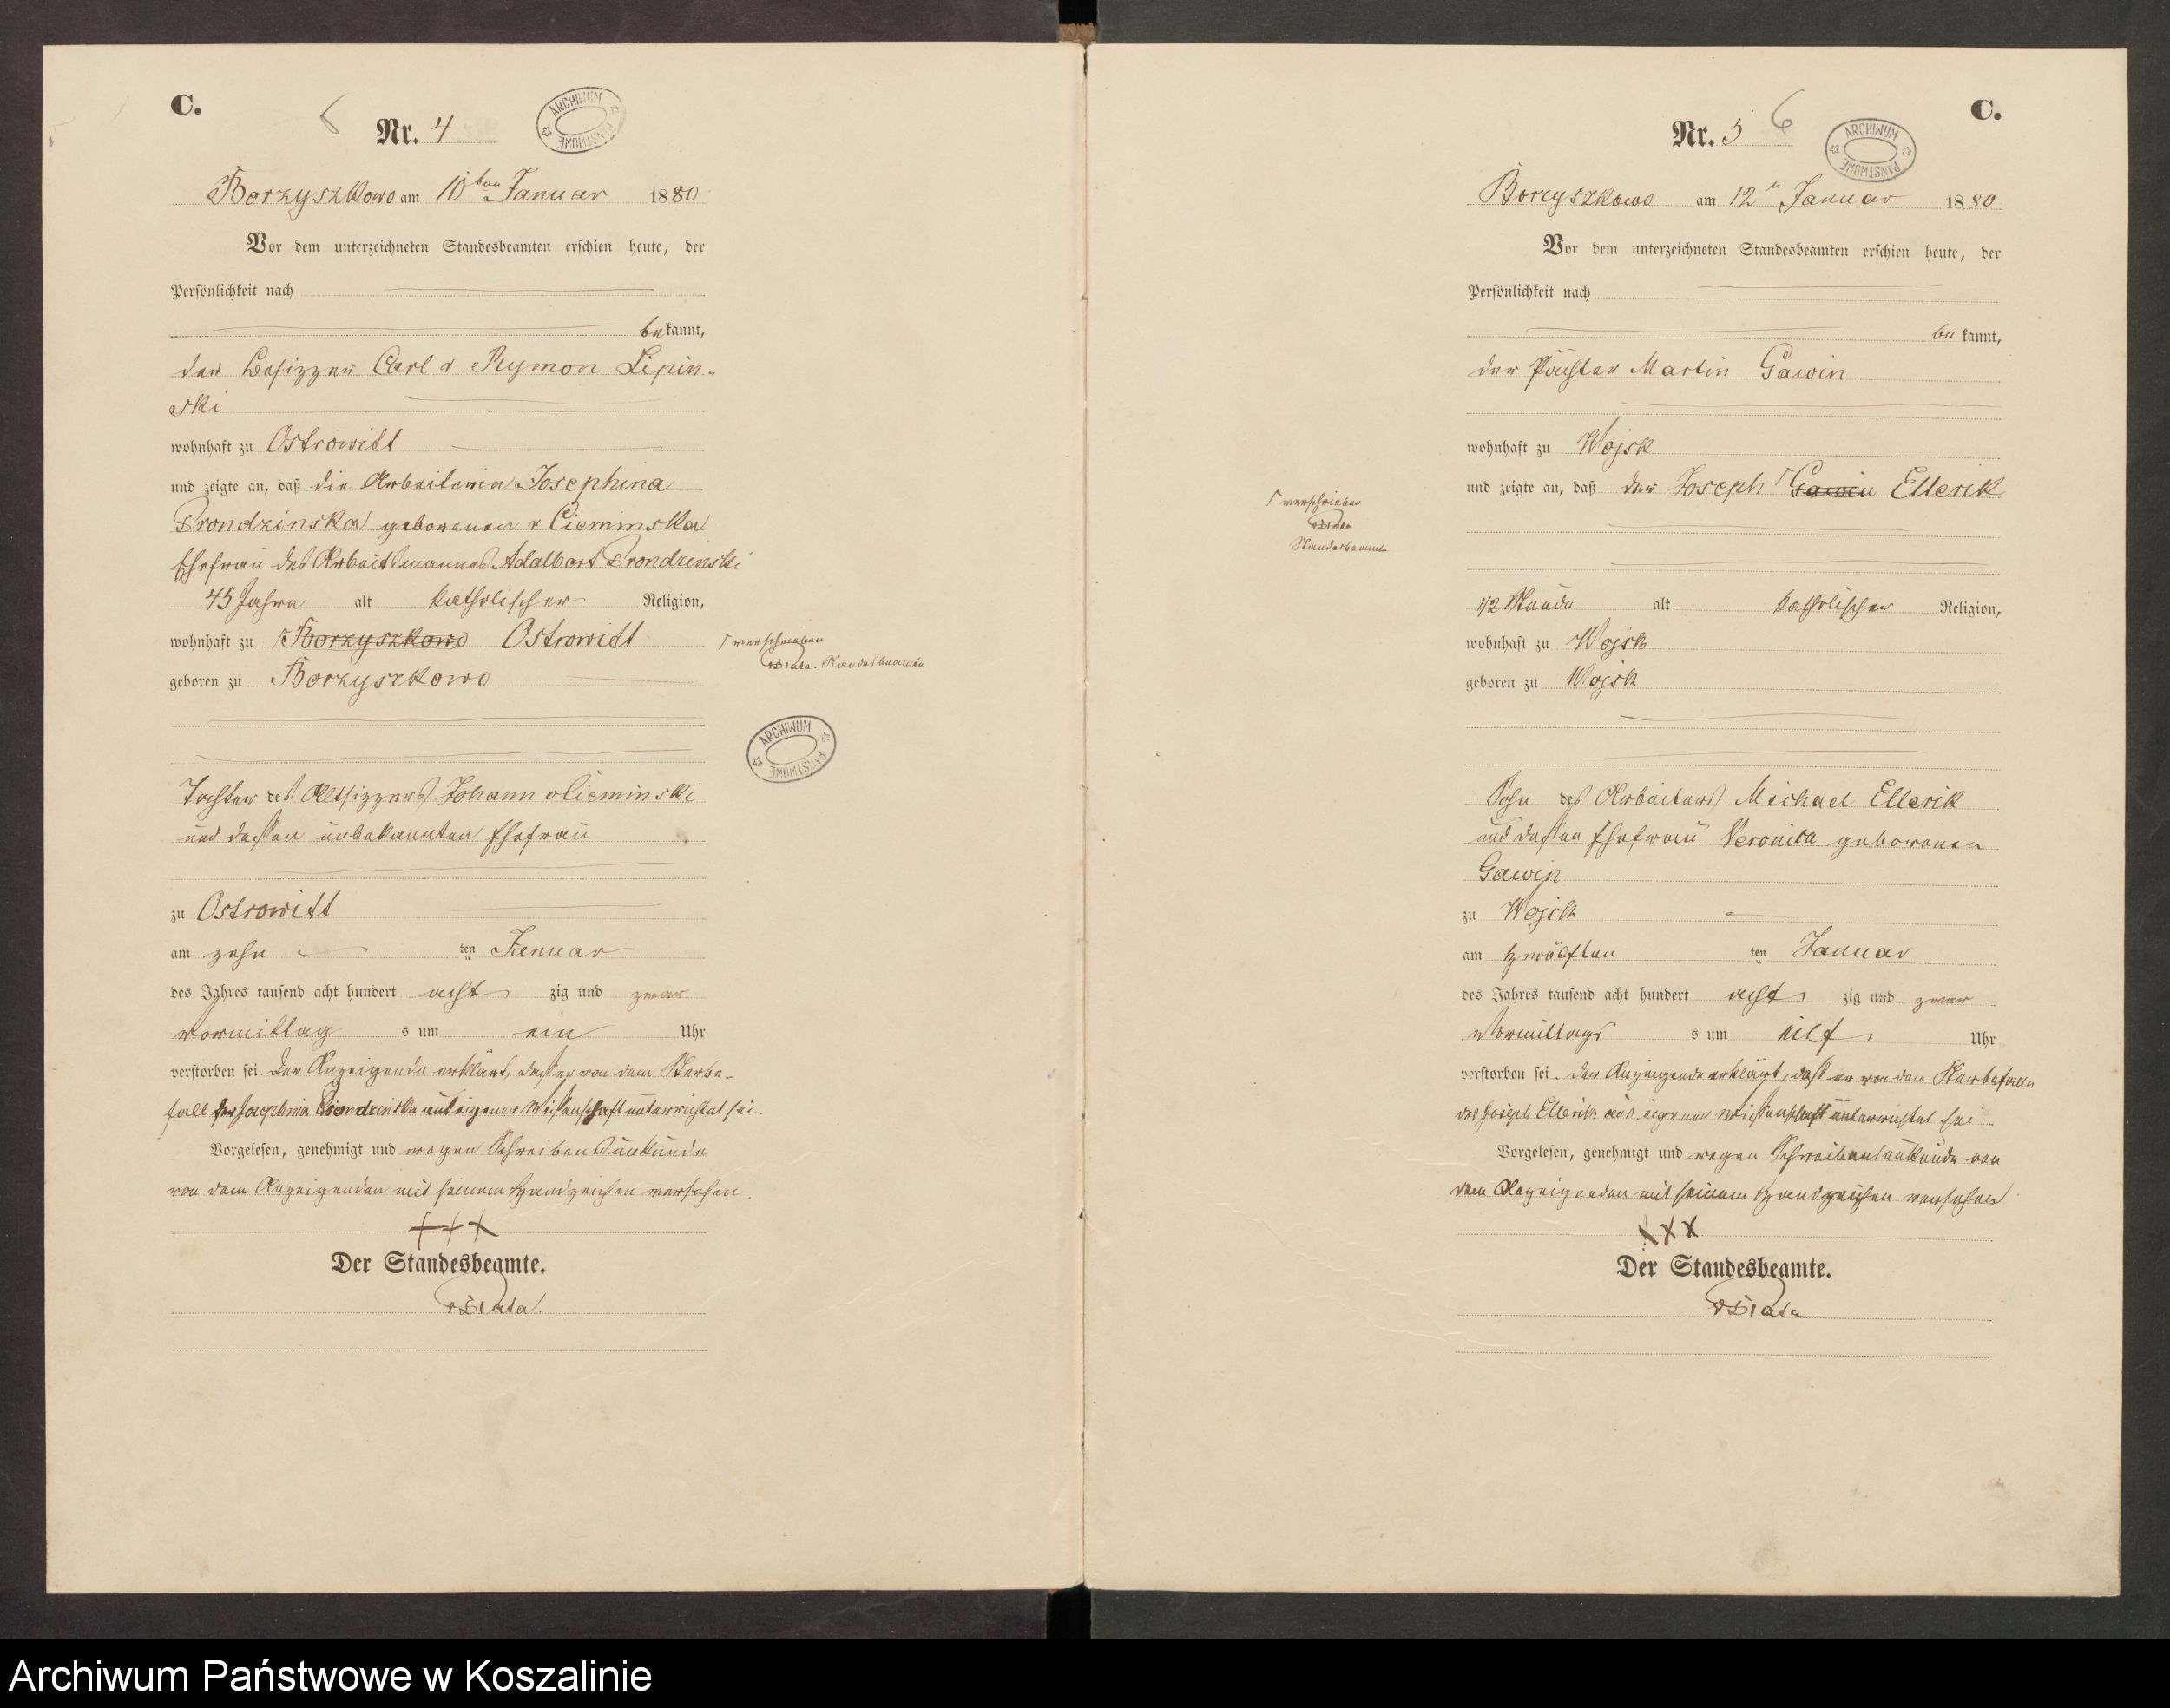 C.
Nr. 4
ARCHIWUM PAŃSTWOWE
Borzyszkowo am 10ten Januar 1880
Vor dem unterzeichneten Standesbeamten erschien heute, der
Persönlichkeit nach
bekannt,
der Besizzer Carl v Rymon Lipin-
ski
wohnhaft zu Ostrowitt
und zeigte an, daß die Arbeiterin Josephina
Prondzinska geborenen v Cieminska
Ehefrau des Arbeitsmannes Adalbert Prondzinski
45 Jahre alt katholischer Religion,
wohnhaft zu Borzyszkowo Ostrowitt
verschrieben
Standesbeamte
geboren zu Borzyszkowo
ARCHIWUM PAŃSTWOWE
Tochter des Altsizzers Johann v Cieminski
und dessen unbekannten Ehefrau
zu Ostrowitt
am zehn ten Januar
des Jahres tausend acht hundert acht zig und zwar
vormittag s um ein Uhr
verstorben sei. Der Anzeigende erklärt, dass er von dem Sterbe-
fall der Josephina Prondzinska aus eigener Wissenschaft unterrichtet sei.
Vorgelesen, genehmigt und wegen Schreibensunkunde
von dem Anzeigenden mit seinem Handzeichen versehen.
+++
Der Standesbeamte.
C.
Nr. 5 6
ARCHIWUM PAŃSTWOWE
Borzyszkowo am 12n Januar 1880
Vor dem unterzeichneten Standesbeamten erschien heute, der
Persönlichkeit nach
bekannt,
der Pächter Martin Gawin
wohnhaft zu Wojsk
und zeigte an, daß der Joseph Gawin Ellerik
verschrieben
Standesbeamte
1/2 Stunde alt katholischer Religion,
wohnhaft zu Wojsk
geboren zu Wojsk
Sohn des Arbeiters Michael Ellerik
und dessen Ehefrau Veronica geborenen
Gawin
zu Wojsk
am zwölften ten Januar
des Jahres tausend acht hundert acht zig und zwar
Vormittags s um eilf Uhr
verstorben sei. Der Anzeigende erklärt, dass er von dem Sterbefalle
des Joseph Ellerik aus eigener Wissenschaft unterrichtet sei
Vorgelesen, genehmigt und wegen Schreibensunkunde von
dem Anzeigenden mit seinem Handzeichen versehen
XXX
Der Standesbeamte.
Archiwum Państwowe w Koszalinie